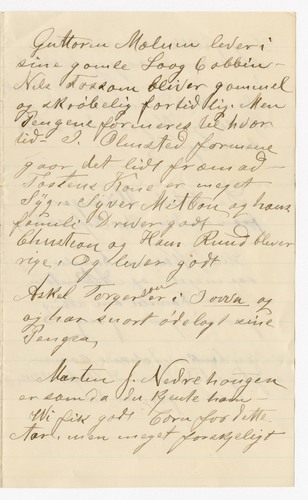 Guttorm Mælum lever i
sine gamle Laag Cabbin –
Nils Fossom bliver gammel
og skrøbelig fortidlig. Men
Pengene formeres til hver
tid – I. Olmsted formene
gaar det lidt fræmad –
Tostens Kone er meget
Syg. Syver Mitbön og hans
famili Driver godt
Christian og Hans Rund bliver
rige, og lever godt
Askel Torgerden i Iowa og
og har snart ödelagt sine
Penger,
Martin J. Nedrehaugen
er som da du kjente ham –
Vi fik godt Corn for dette
Aar, men meget forskjeligt